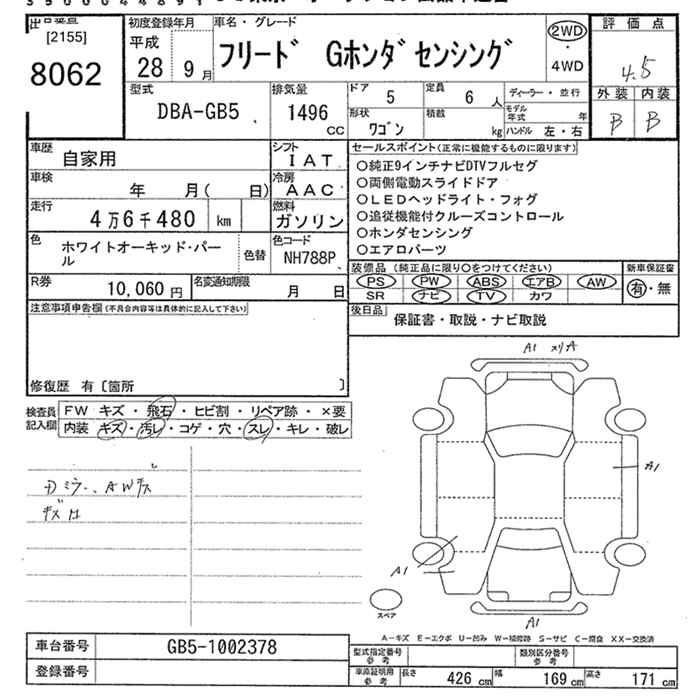 [2155]
8062
初度登録年月
平成
28 9月
車名・グレード
フリード Gホンダセンシング
2WD
・
4WD
評価点
4.5
外装 内装
B B
型式
DBA-GB5
排気量
1496
CC
ドア 5
定員 6人
ディーラー・並行
形状 ワゴン
積載 kg
モデル年式 年
ハンドル 左・右
車歴 自家用
シフト IAT
車検 年 月( 日)
冷房 AAC
走行 4万6千480 km
燃料 ガソリン
色 ホワイトオーキッド・パール
色替
色コード NH788P
R券 10,060円
名変通知期限 月 日
セールスポイント(正常に機能するものに限ります)
○純正9インチナビDTVフルセグ
○両側電動スライドドア
○LEDヘッドライト・フォグ
○追従機能付クルーズコントロール
○ホンダセンシング
○エアロパーツ
装備品(純正品に限り○をつけてください)
PS PW ABS エアB AW
SR ナビ TV カワ
新車保証書
有・無
後日品
保証書・取説・ナビ取説
注意事項申告欄(不具合内容等は具体的に記入して下さい)
修復歴 有〔箇所 〕
検査員記入欄
FW キズ・飛石・ヒビ割・リペア跡・×要
内装 キズ・汚レ・コゲ・穴・スレ・キレ・破レ
A1
A1
A1
A1
スペア
A-キズ E-エクボ U-凹み W-補修跡 S-サビ C-腐食 XX-交換済
車台番号 GB5-1002378
登録番号
型式指定番号
参考
類別区分番号
参考
車庫証明用
参考
長さ 426 cm
幅 169 cm
高さ 171 cm